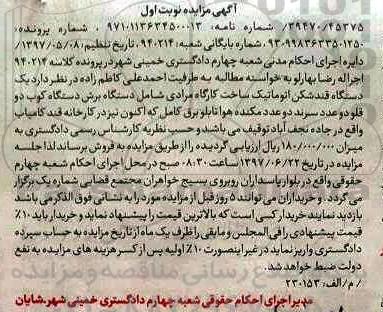 آگهی مزایده نوبت اول
۳۹۴۷۰/۴۵۳۷۵/ شماره نامه: ۹۷۱۰۱۱۳۶۳۴۵۰۰۰۱۳ ، شماره پرونده:
۹۳۰۹۹۸۳۶۳۳۵۰۱۲۵۰، شماره بایگانی شعبه: ۹۴۰۲۱۴، تاریخ تنظیم: ۱۳۹۷/۰۵/۰۸
دایره اجرای احکام مدنی شعبه چهارم دادگستری خمینی شهر در پرونده کلاسه ۹۴۰۲۱۴
اجرا له رضا بهارلو به خواسته مطالبه به طرفیت احمدعلی کاظم زاده در نظر دارد یک
دستگاه قندشکن اتوماتیک ساخت کارگاه مرادی شامل دستگاه برش دستگاه کوب دو
قلو دو عدد سرند دو عدد مکنده هوا تابلو برق کامل که اکنون نیز در کارخانه قند کامیاب
واقع در جاده نجف آباد توقیف می باشد و حسب نظریه کارشناس رسمی دادگستری به
میزان ۱۸۰/۰۰۰/۰۰۰ ریال ارزیابی گردیده را از طریق مزایده به فروش برساند لذا جلسه
مزایده در تاریخ ۱۳۹۷/۰۶/۲۲ ساعت ۰۸:۳۰ صبح در محل اجرای احکام شعبه چهارم
حقوقی واقع در بلوار پاسداران روبروی بسیج خواهران مجتمع قضایی شماره یک برگزار
می گردد. و خریداران می توانند ۵ روز قبل از مزایده مورد را به نشانی فوق الذکر می باشد
بازدید نمایند خریدار کسی است که بالاترین قیمت را پیشنهاد نماید و خریدار باید ۱۰٪
قیمت پیشنهادی را فی المجلس و مابقی را ظرف یک ماه از تاریخ مزایده به حساب سپرده
دادگستری واریز نماید در غیر اینصورت ۱۰٪ اولیه پس از کسر هزینه های مزایده به نفع
دولت ضبط خواهد شد.
/ م/الف: ۲۳۰۱۵۳
مدیر اجرای احکام حقوقی شعبه چهارم دادگستری خمینی شهر.شایان